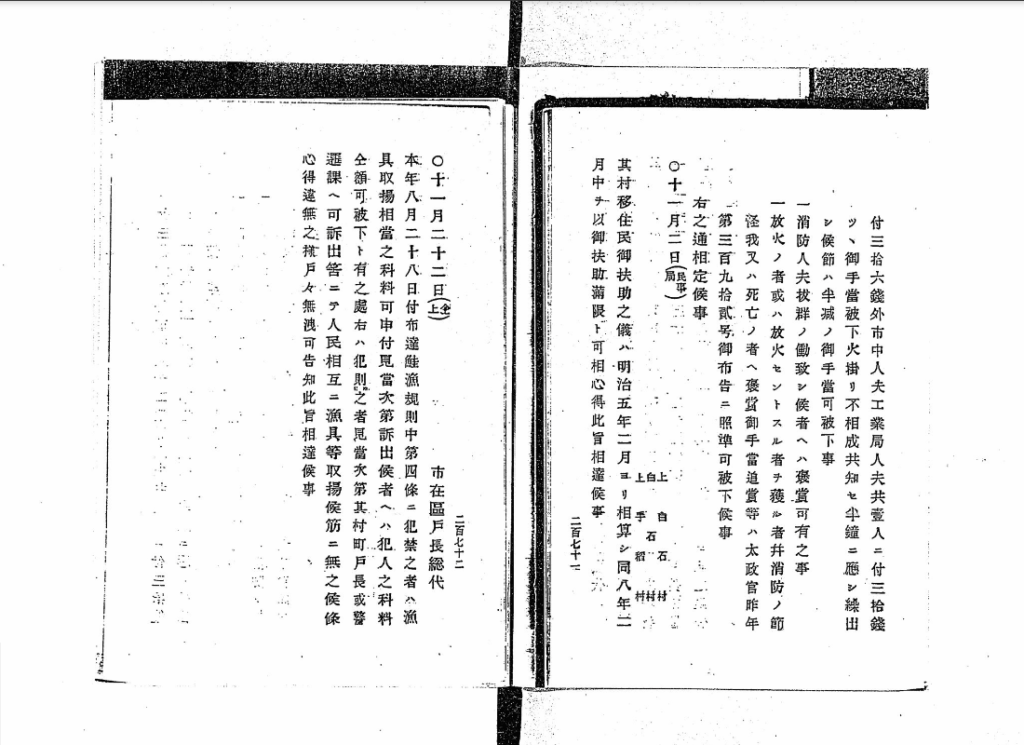 付三拾六錢外市中人夫工業局人夫共壹人ニ付三拾錢
ツヽ御手當被下火掛リ不相成共知セ半鐘ニ應シ繰出
シ候節ハ半减ノ御手當可被下事
一消防人夫拔群ノ働致シ候者ヘハ褒賞可有之事
一放火ノ者或ハ放火セントスル者ヲ獲ル者幷消防ノ節
怪我又ハ死亡ノ者ヘ褒賞御手當追賞等ハ太政官昨年
第三百九拾貳号御布告ニ照準可被下候事
右之通相定候事
〇十一月二日(民事局)
上白石村
白石村
上手稻村
其村移住民御扶助之儀ハ明治五年二月ヨリ相算シ同八年二
月中ヲ以御扶助滿限ト可相心得此旨相達候事
二百七十一
二百七十二
〇十一月二十二日(仝上)
市在區戸長総代
本年八月二十八日付布達鮭漁規則中第四條ニ犯禁之者ハ漁
具取揚相當之科料可申付見當次第訴出候者ヘハ犯人之科料
全額可被下ト有之處右ハ犯則之者見當次第其村町戸長或警
邏課ヘ可訴出筈ニテ人民相互ニ漁具等取揚候筋ニ無之候條
心得違無之樣戸々無洩可告知此旨相達候事